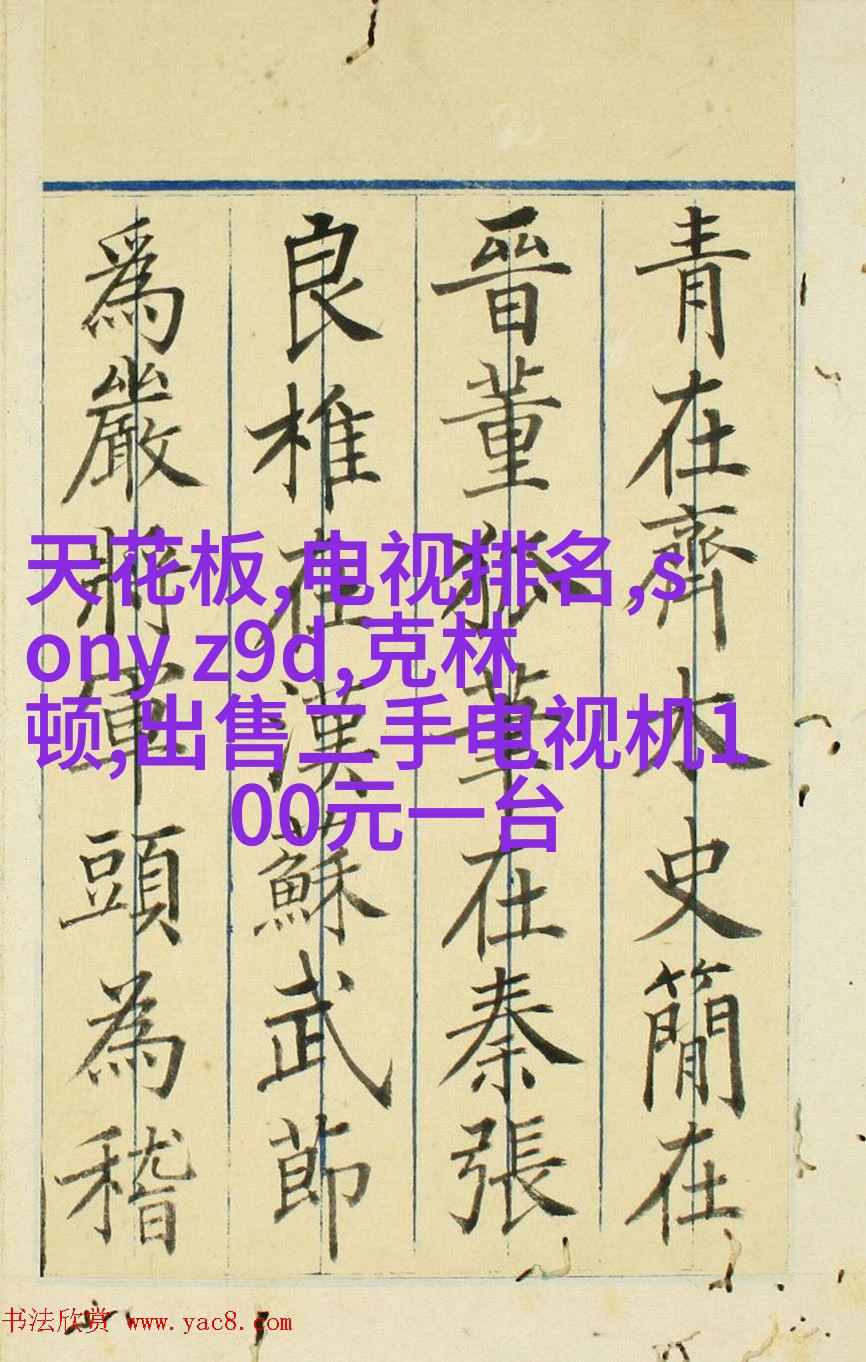 青在齊太史簡在
晉董狐筆在秦張
良椎在漢蘇武節
爲嚴將軍頭為稽
天花板,电视排名,s
ony z9d,克林
顿,出售二手电视机1
00元一台
书法欣赏 www.yac8.com